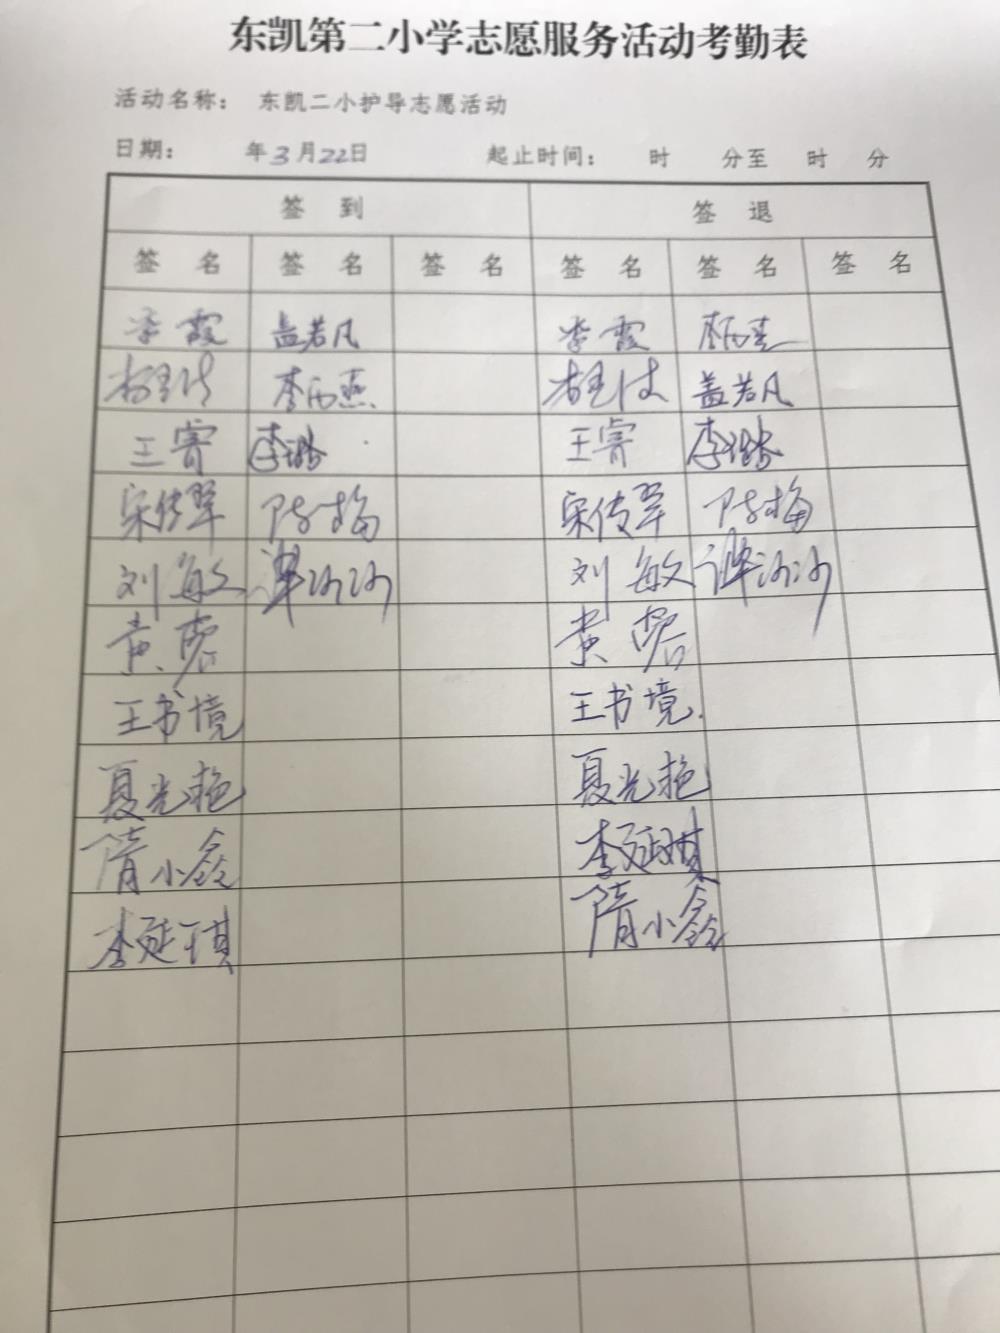 东凯第二小学志愿服务活动考勤表
活动名称： 东凯二小护导志愿活动
日期： 年3月22日 起止时间： 时 分至 时 分
签 到 签 退
签 名 签 名 签 名 签 名 签 名 签 名
李霞 盖若凡 李霞 李丙燕
李丙燕 盖若凡
王睿 李璐 王睿 李璐
宋传翠 陈梅 宋传翠 陈梅
刘敏 谭沙沙 刘敏 谭沙沙
黄蓉 黄蓉
王书境 王书境
夏光艳 夏光艳
隋小鑫 李延琪
李延琪 隋小鑫